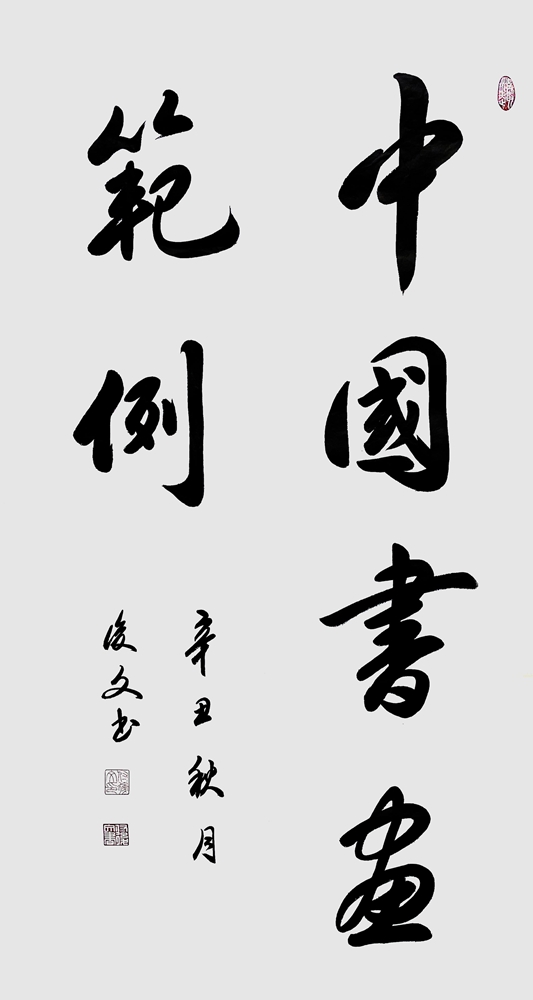 中國書畫
範例
辛丑秋月
俊文书